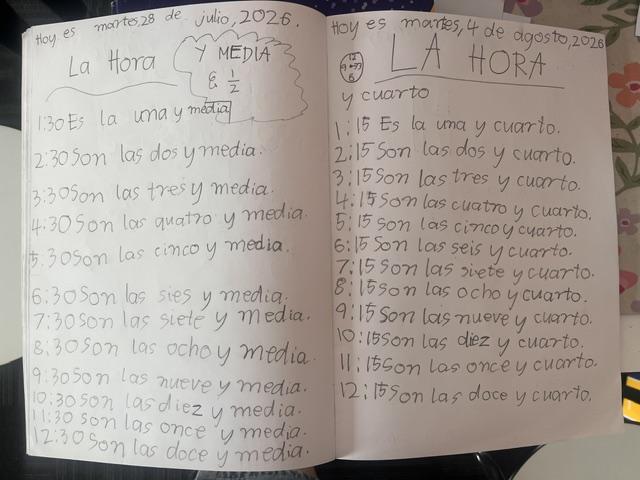 Hoy es martes, 28 de julio, 2026.
La Hora
Y MEDIA
& 1/2
1:30 Es la una y media
2:30 Son las dos y media.
3:30 Son las tres y media.
4:30 Son las quatro y media.
5:30 Son las cinco y media.
6:30 Son las sies y media.
7:30 Son las siete y media.
8:30 Son las ocho y media.
9:30 Son las nueve y media.
10:30 Son las diez y media.
11:30 Son las once y media.
12:30 Son las doce y media.
Hoy es martes, 4 de agosto, 2026
LA HORA
y cuarto
1:15 Es la una y cuarto.
2:15 Son las dos y cuarto.
3:15 Son las tres y cuarto.
4:15 Son las cuatro y cuarto.
5:15 Son las cinco y cuarto.
6:15 Son las seis y cuarto.
7:15 Son las siete y cuarto.
8:15 Son las ocho y cuarto.
9:15 Son las nueve y cuarto.
10:15 Son las diez y cuarto.
11:15 Son las once y cuarto.
12:15 Son las doce y cuarto.